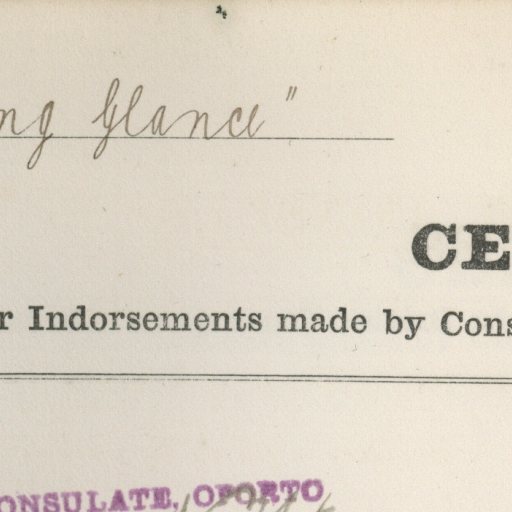 ng Glance"
CE
r Indorsements made by Cons
ONSULATE, OPORTO